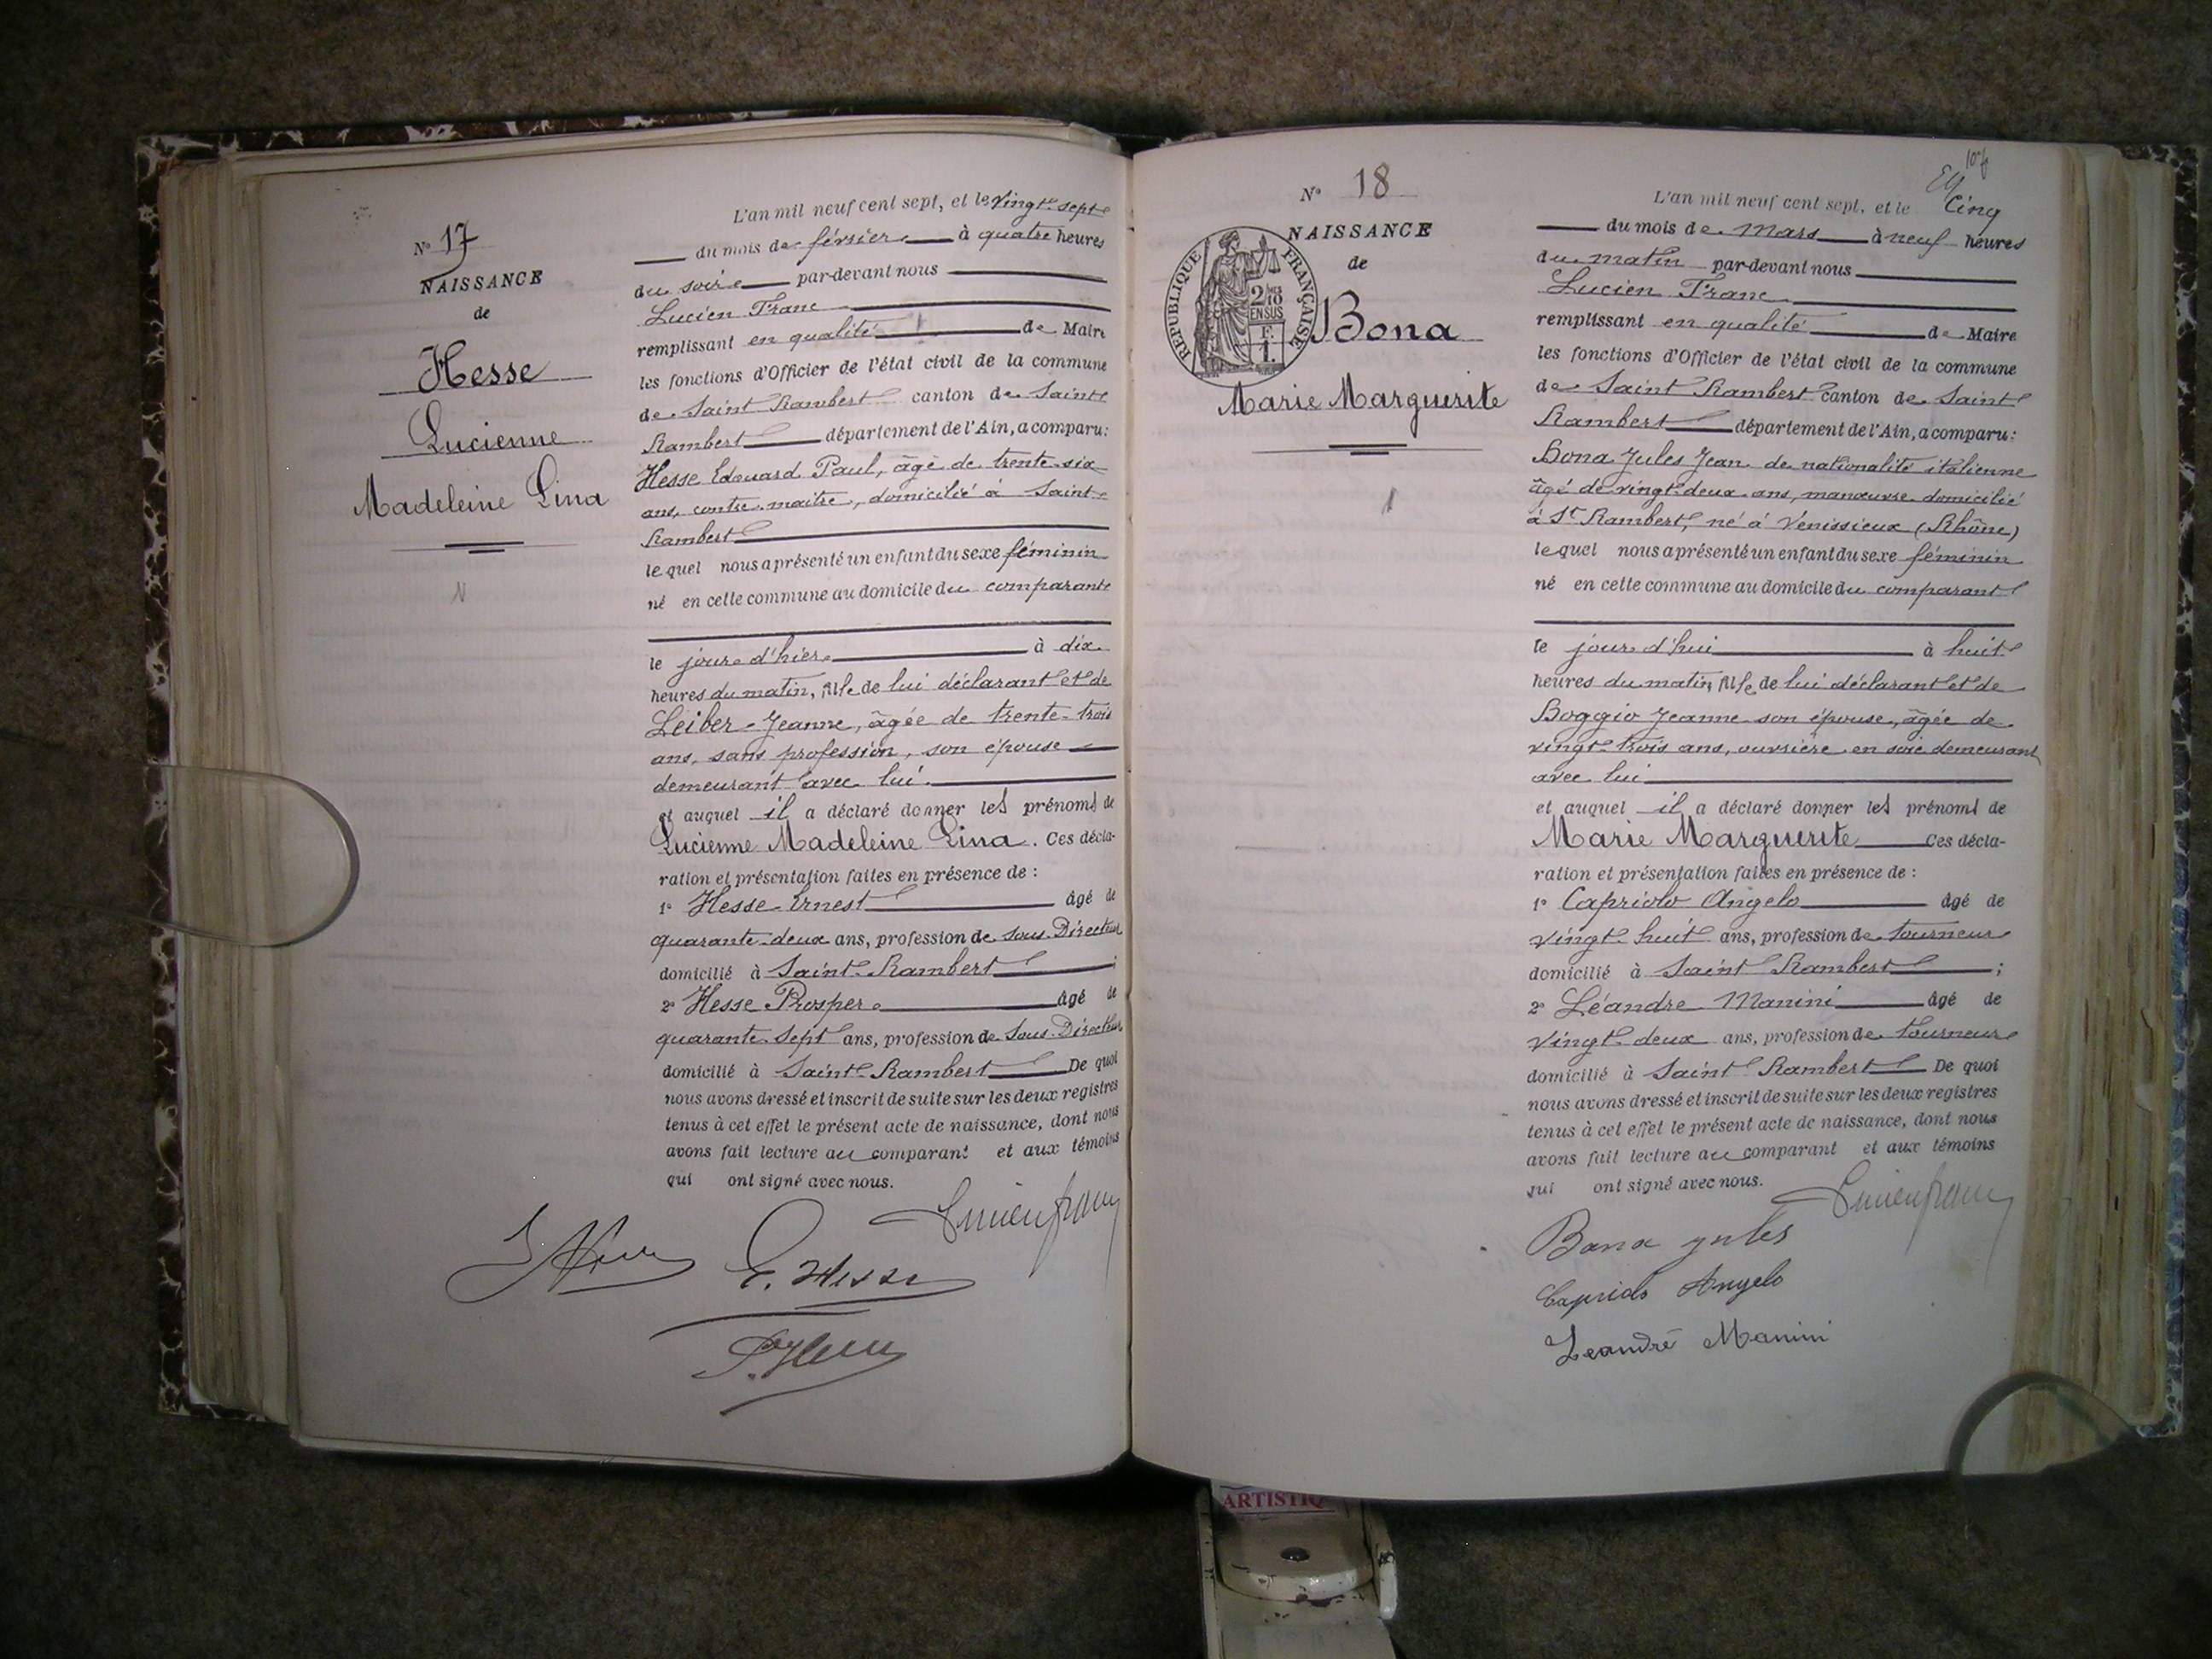 N° 17
NAISSANCE
de
Hesse
Lucienne
Madeleine Lina
L'an mil neuf cent sept, et le vingt-sept
du mois de février à quatre heures
du soir par-devant nous
Lucien Franc
remplissant en qualité de Maire
les fonctions d'Officier de l'état civil de la commune
de Saint Rambert canton de Saint
Rambert département de l'Ain, a comparu:
Hesse Edouard Paul, âgé de trente-six
ans, contre-maître, domicilié à Saint-
Rambert
lequel nous a présenté un enfant du sexe féminin
né en cette commune au domicile du comparant
le jour d'hier à dix
heures du matin, fille de lui déclarant et de
Leiber Jeanne, âgée de trente-trois
ans, sans profession, son épouse
demeurant avec lui.
et auquel il a déclaré donner les prénoms de
Lucienne Madeleine Lina. Ces décla-
ration et présentation faites en présence de :
1° Hesse Ernest âgé de
quarante-deux ans, profession de Sous-Directeur
domicilié à Saint-Rambert ;
2° Hesse Prosper âgé de
quarante-sept ans, profession de Sous-Directeur
domicilié à Saint-Rambert De quoi
nous avons dressé et inscrit de suite sur les deux registres
tenus à cet effet le présent acte de naissance, dont nous
avons fait lecture au comparant et aux témoins
qui ont signé avec nous.
Lucien franc
E. Hesse
P. Hesse
N° 18
NAISSANCE
de
RÉPUBLIQUE FRANÇAISE
2/10 EN SUS
F.
1.
Bona
Marie Marguerite
107
L'an mil neuf cent sept, et le Cinq
du mois de Mars à neuf heures
du matin par-devant nous
Lucien Franc
remplissant en qualité de Maire
les fonctions d'Officier de l'état civil de la commune
de Saint Rambert canton de Saint
Rambert département de l'Ain, a comparu:
Bona Jules Jean de nationalité italienne
âgé de vingt-deux ans, manœuvre domicilié
à St Rambert, né à Vénissieux (Rhône)
lequel nous a présenté un enfant du sexe féminin
né en cette commune au domicile du comparant
le jour d'hui à huit
heures du matin, fille de lui déclarant et de
Boggio Jeanne son épouse, âgée de
vingt-trois ans, ouvrière en soie demeurant
avec lui
et auquel il a déclaré donner les prénoms de
Marie Marguerite Ces décla-
ration et présentation faites en présence de :
1° Capriolo Angelo âgé de
vingt-huit ans, profession de tourneur
domicilié à Saint Rambert ;
2° Léandre Manini âgé de
vingt-deux ans, profession de tourneur
domicilié à Saint Rambert De quoi
nous avons dressé et inscrit de suite sur les deux registres
tenus à cet effet le présent acte de naissance, dont nous
avons fait lecture au comparant et aux témoins
qui ont signé avec nous.
Lucien franc
Bona jules
Capriolo Angelo
Leandré Manini
ARTISTIQ